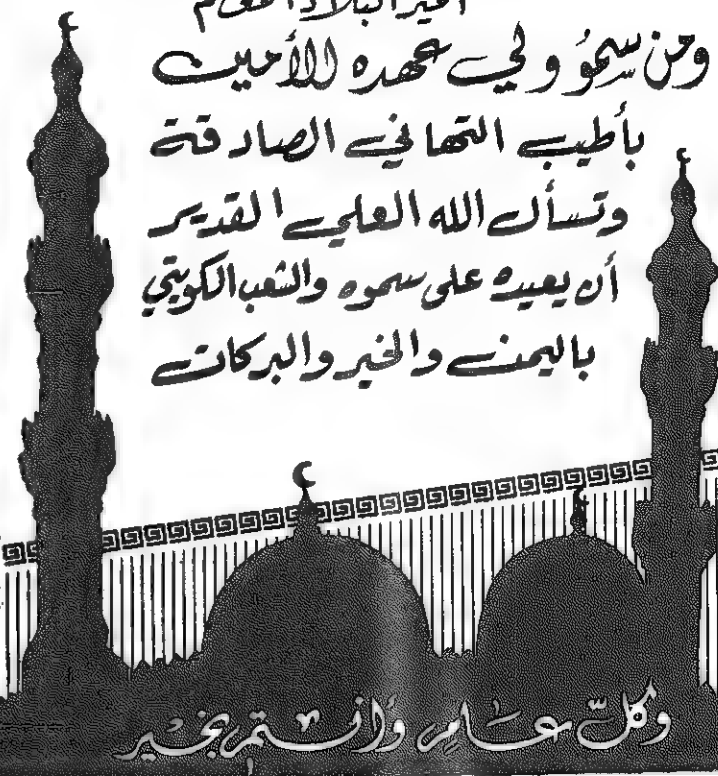 أمير البلاد المفدى
ومن سمو ولي عهده الأمين
بأطيب التهاني الصادقة
وتسأل الله العلي القدير
أن يعيده على سموه والشعب الكويتي
باليمن والخير والبركات
وكل عام وأنتم بخير